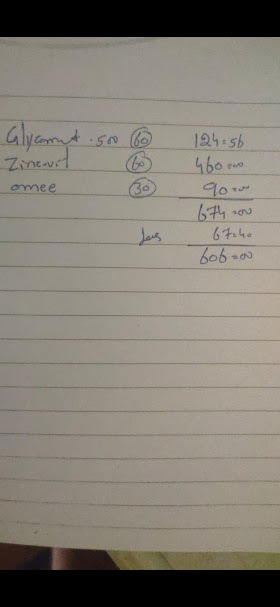 Glycomet . 500 60 124=56
Zincovit 60 460=00
omee 30 90=00
674=00
Less 67=40
606=00